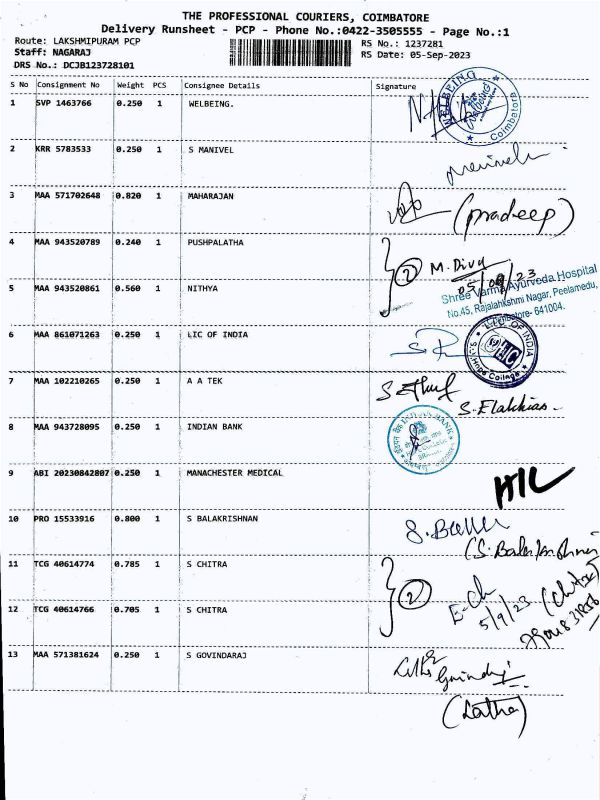 THE PROFESSIONAL COURIERS, COIMBATORE
Delivery Runsheet - PCP - Phone No.:0422-3505555 - Page No.:1
Route: LAKSHMIPURAM PCP
RS No.: 1237281
Staff: NAGARAJ
RS Date: 05-Sep-2023
DRS No.: DCJB123728101
S No Consignment No Weight PCS Consignee Details Signature
1 SVP 1463766 0.250 1 WELBEING.
WELBEING
Coimbatore
2 KRR 5783533 0.250 1 S MANIVEL
3 MAA 571702648 0.820 1 MAHARAJAN
(pradeep)
4 MAA 943520789 0.240 1 PUSHPALATHA
2 M. Divya
05/09/23
5 MAA 943520861 0.560 1 NITHYA
Shree Varma Ayurveda Hospital
No.45, Rajalahkshmi Nagar, Peelamedu,
Coimbatore- 641004.
6 MAA 861071263 0.250 1 LIC OF INDIA
LIC OF INDIA
LIC
7 MAA 102210265 0.250 1 A A TEK
8 MAA 943728095 0.250 1 INDIAN BANK
INDIAN BANK
9 ABI 20230842807 0.250 1 MANACHESTER MEDICAL
10 PRO 15533916 0.800 1 S BALAKRISHNAN
11 TCG 40614774 0.785 1 S CHITRA
2
5/9/23
12 TCG 40614766 0.705 1 S CHITRA
13 MAA 571381624 0.250 1 S GOVINDARAJ
(Latha)